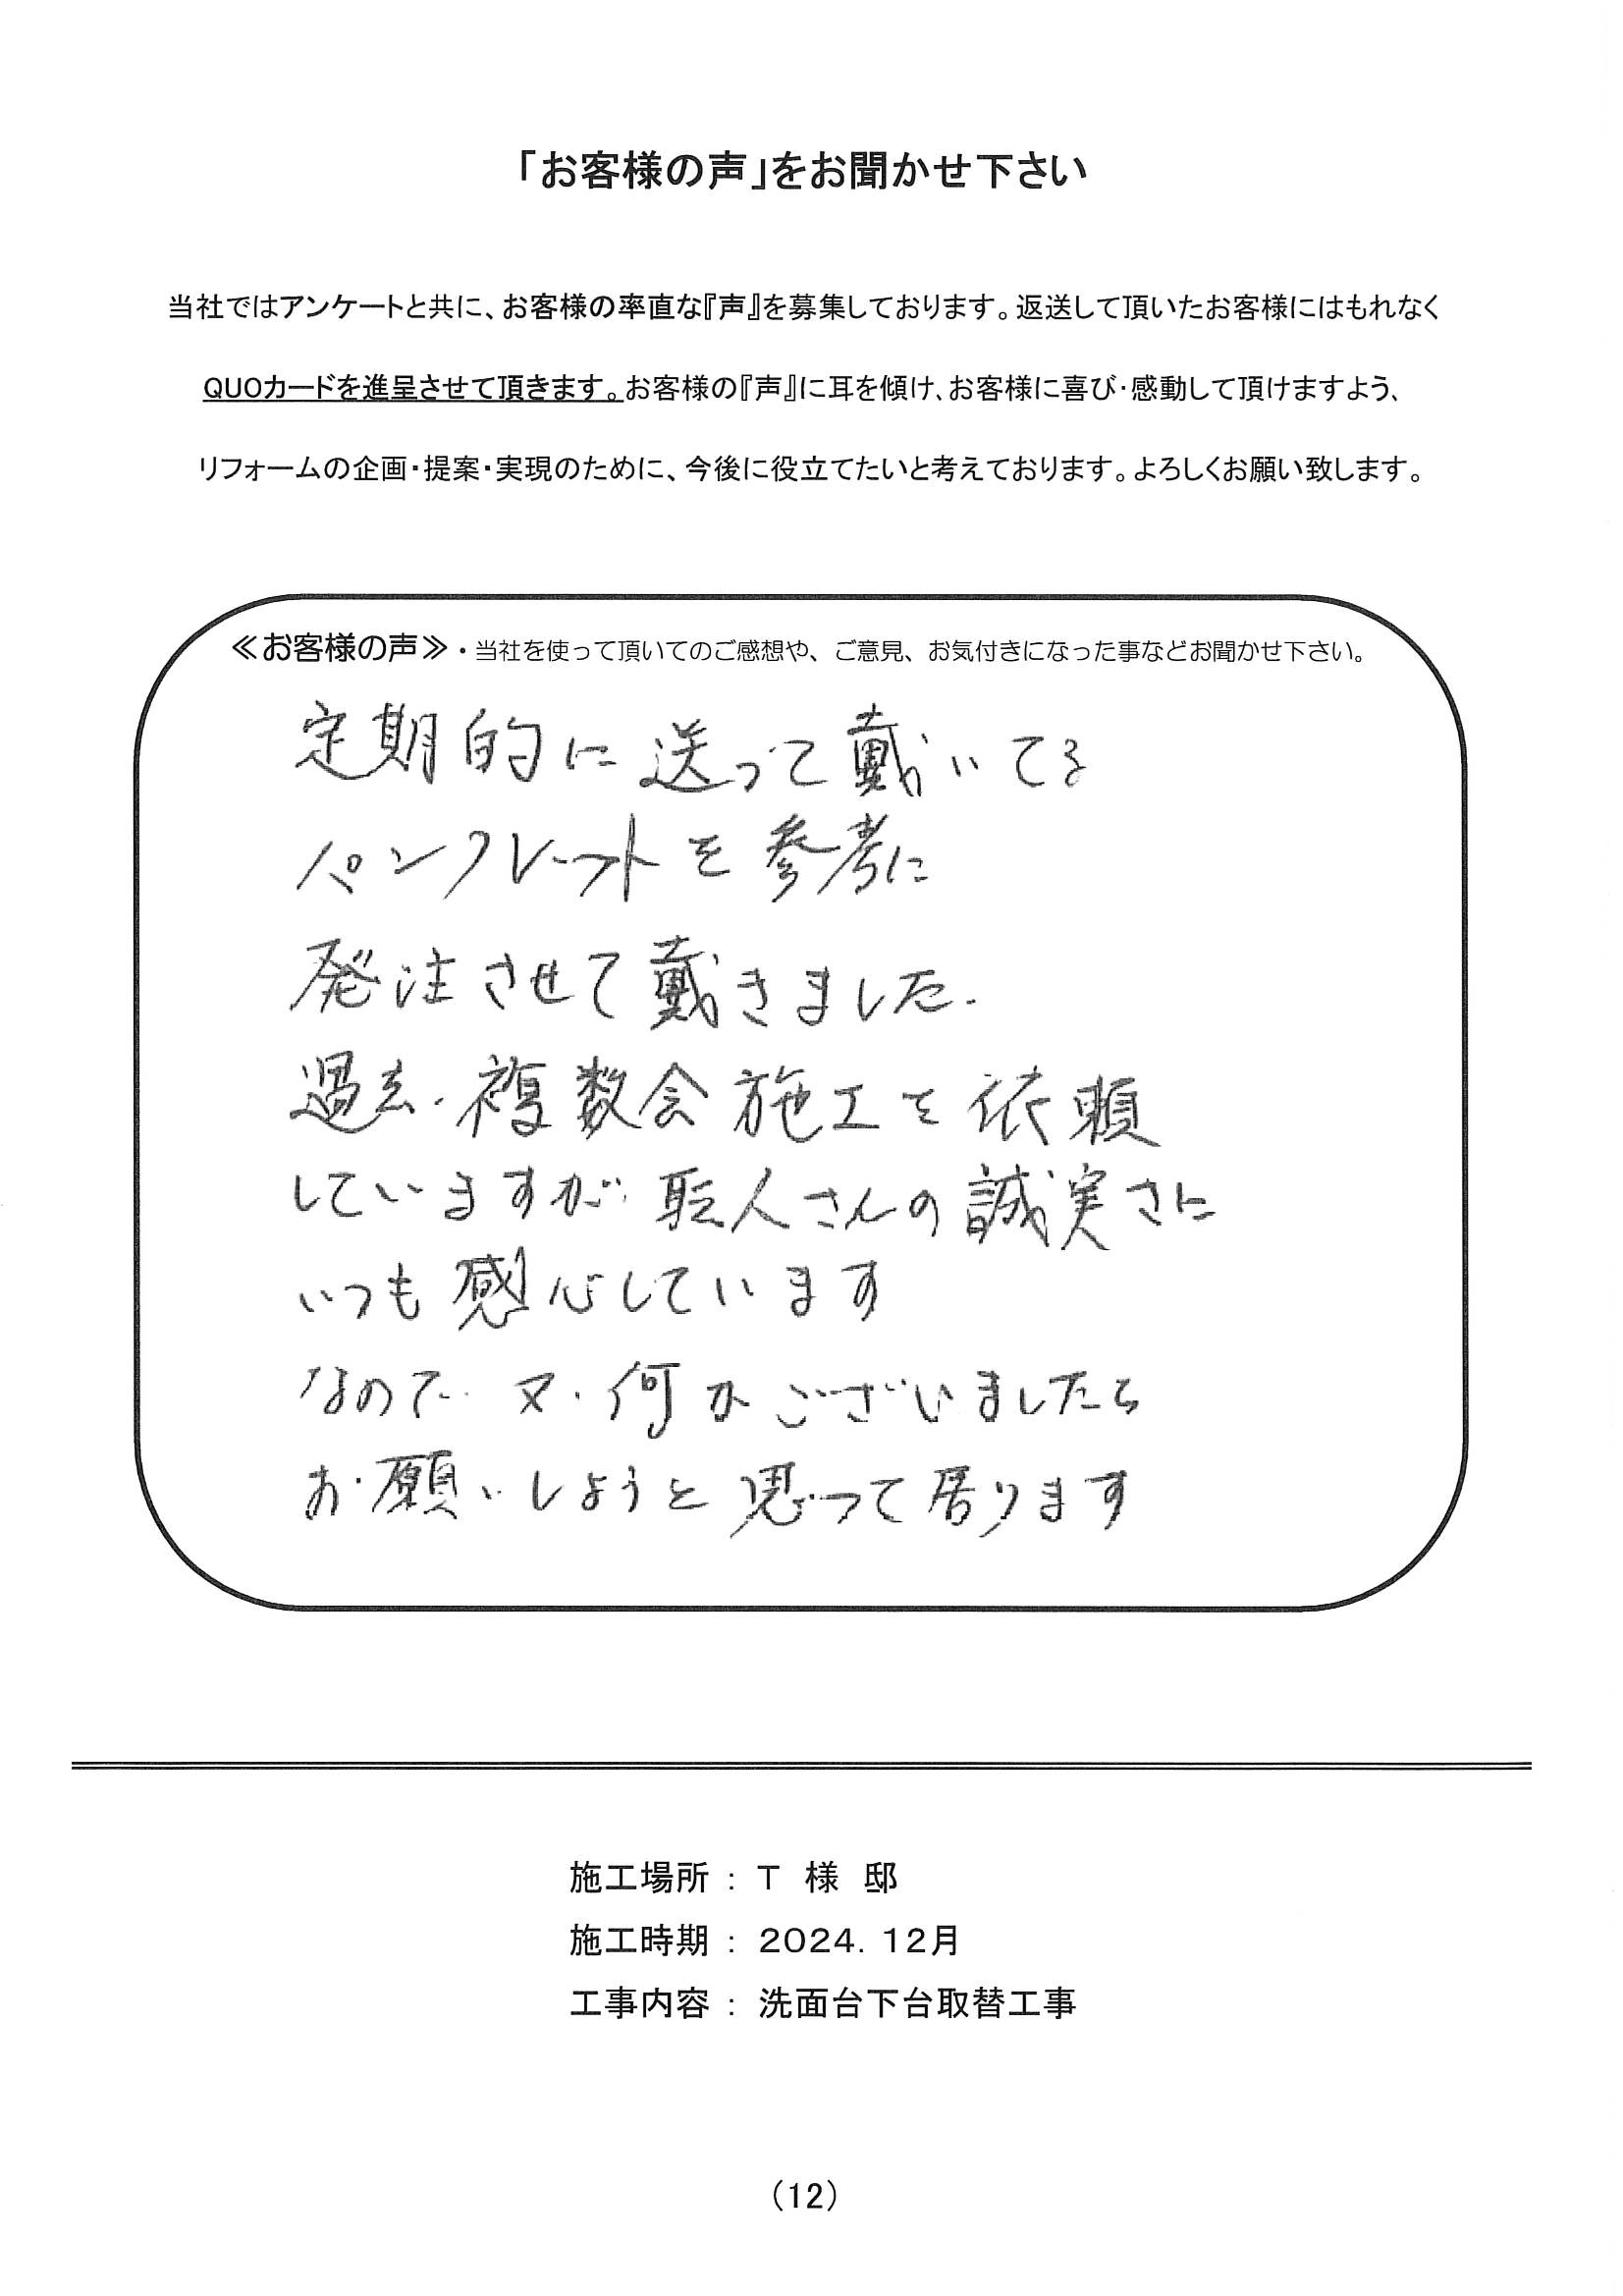 「お客様の声」をお聞かせ下さい
当社ではアンケートと共に、お客様の率直な『声』を募集しております。返送して頂いたお客様にはもれなく
QUOカードを進呈させて頂きます。お客様の『声』に耳を傾け、お客様に喜び・感動して頂けますよう、
リフォームの企画・提案・実現のために、今後に役立てたいと考えております。よろしくお願い致します。
≪お客様の声≫・当社を使って頂いてのご感想や、ご意見、お気付きになった事などお聞かせ下さい。
定期的に送って戴いてる
パンフレットを参考に
発注させて戴きました.
過去.複数会施工を依頼
していますが職人さんの誠実さに
いつも感心しています
なので 又.何かございましたら
お願いしようと思って居ります
施工場所 : T 様 邸
施工時期 : 2024. 12月
工事内容 : 洗面台下台取替工事
(12)